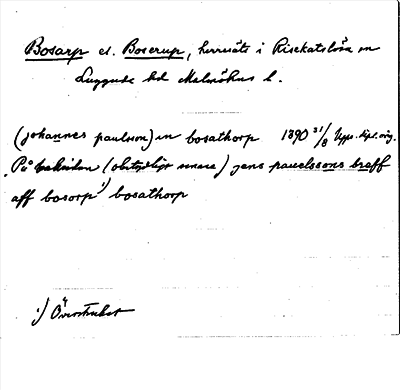 Bosarp el. Boserup, herrsäte i Risekatslösa sn
Luggude hd Malmöhus l.
(johannes paulsson) in bosathorp 1390 31/8 Upps. dipl. orig.
På baksidan (obetydligt senare) jens pauelssons breff
aff bosorp 1) bosathorp
1) Överstruket